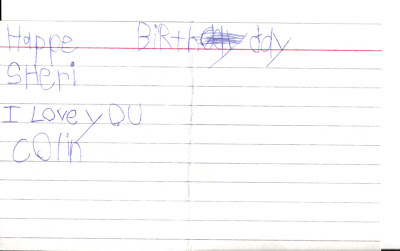 Happe BiRth day
SHeri
I Love yOU
COlin